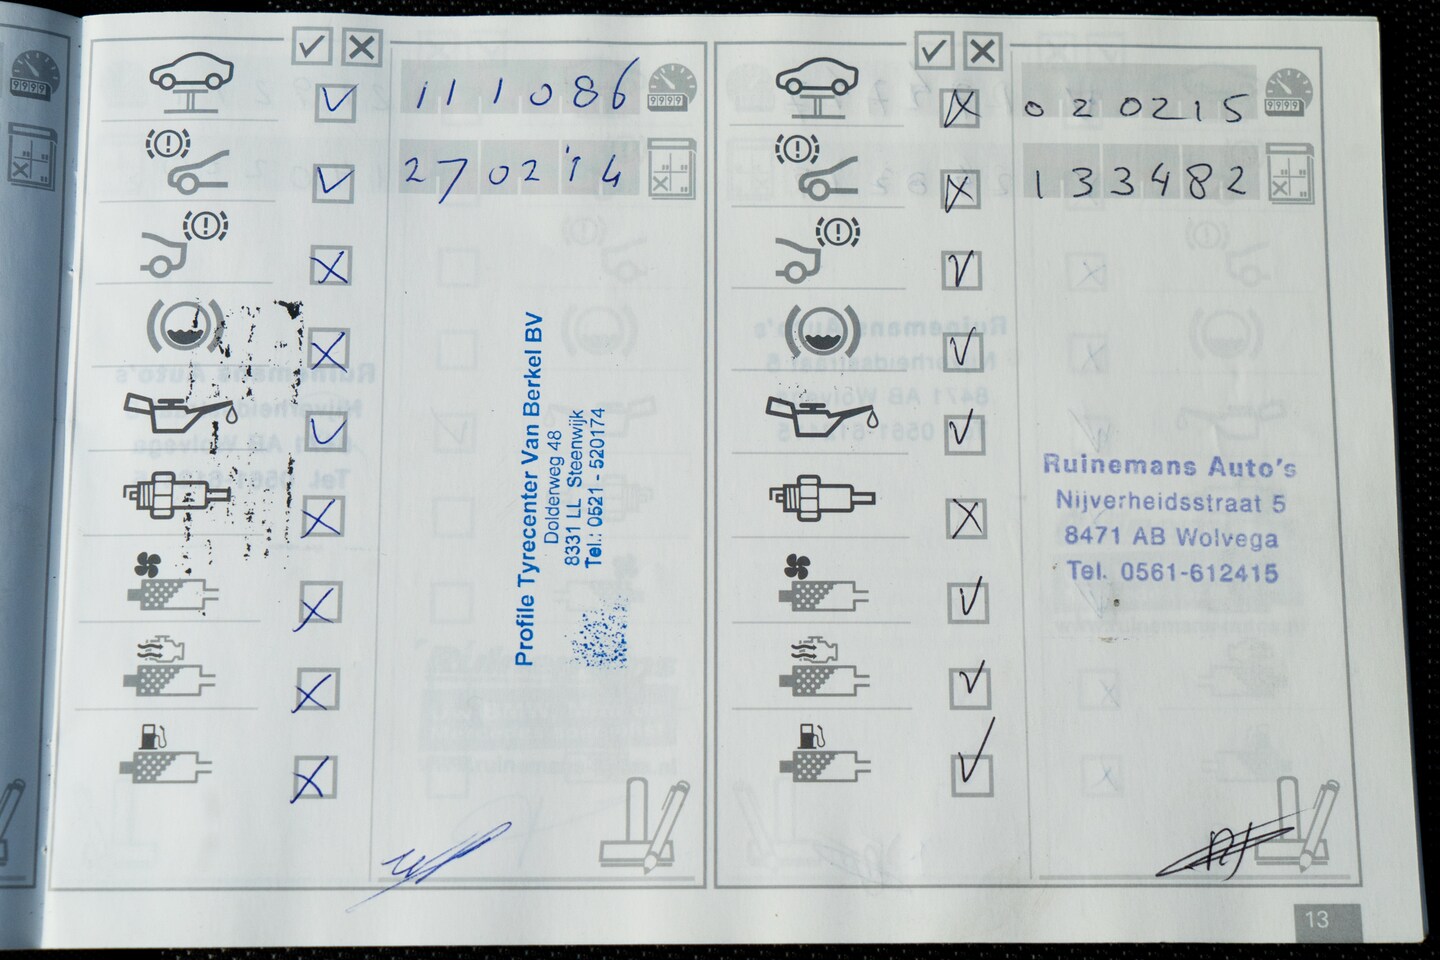 111086
270214
Profile Tyrecenter Van Berkel BV
Dolderweg 48
8331 LL Steenwijk
Tel.: 0521 - 520174
020215
133482
Ruinemans Auto's
Nijverheidsstraat 5
8471 AB Wolvega
Tel. 0561-612415
13